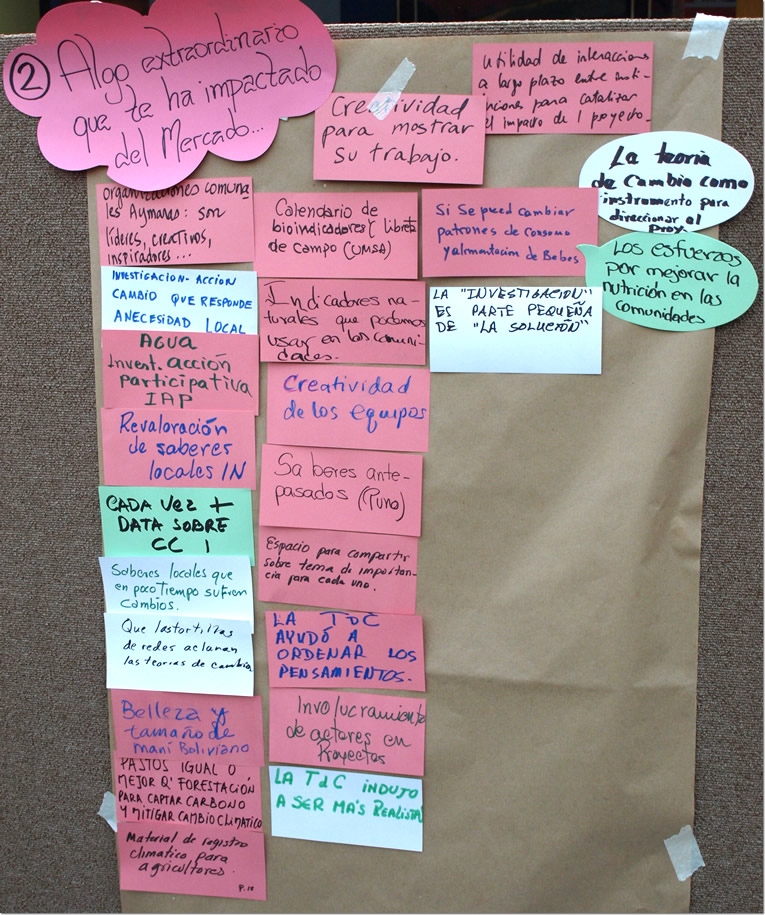 2 Algo extraordinario
que te ha impactado
del Mercado...
Creatividad
para mostrar
su trabajo.
Utilidad de interacciones
a largo plazo entre insti-
para catalizar
el impacto de 1 proyecto.
La teoría
de Cambio como
instrumento para
direccionar al
Proy.
Los esfuerzos
por mejorar la
nutrición en las
comunidades
organizaciones comuna
les Aymaras: son
líderes, creativos,
inspiradores...
INVESTIGACION-ACCION
CAMBIO QUE RESPONDE
A NECESIDAD LOCAL
AGUA
Invest. acción
participativa
IAP
Revaloración
de saberes
locales IN
CADA VEZ +
DATA SOBRE
CC !
Saberes locales que
en poco tiempo sufren
cambios.
Que las tortillas
de redes aclaran
las teorias de cambio
Belleza y
tamaño de
maní Boliviano
PASTOS IGUAL O
MEJOR Q' FORESTACIÓN
PARA CAPTAR CARBONO
Y MITIGAR CAMBIO CLIMATICO
Material de registro
climatico para
agricultores.
P.10
Calendario de
bioindicadores y libreta
de campo (UMSA)
Indicadores na-
turales que podamos
usar en las comuni-
dades.
Creatividad
de los equipos
Saberes ante-
pasados (Puno)
Espacio para compartir
sobre tema de importan-
cia para cada uno.
LA TDC
AYUDÓ A
ORDENAR LOS
PENSAMIENTOS.
Involucramiento
de actores en
Proyectos
LA TdC INDUJO
A SER MA'S REALISTA
Si Se pued cambiar
patrones de Consumo
y alimentacion de Bebes
LA "INVESTIGACION"
ES PARTE PEQUEÑA
DE "LA SOLUCIÓN"